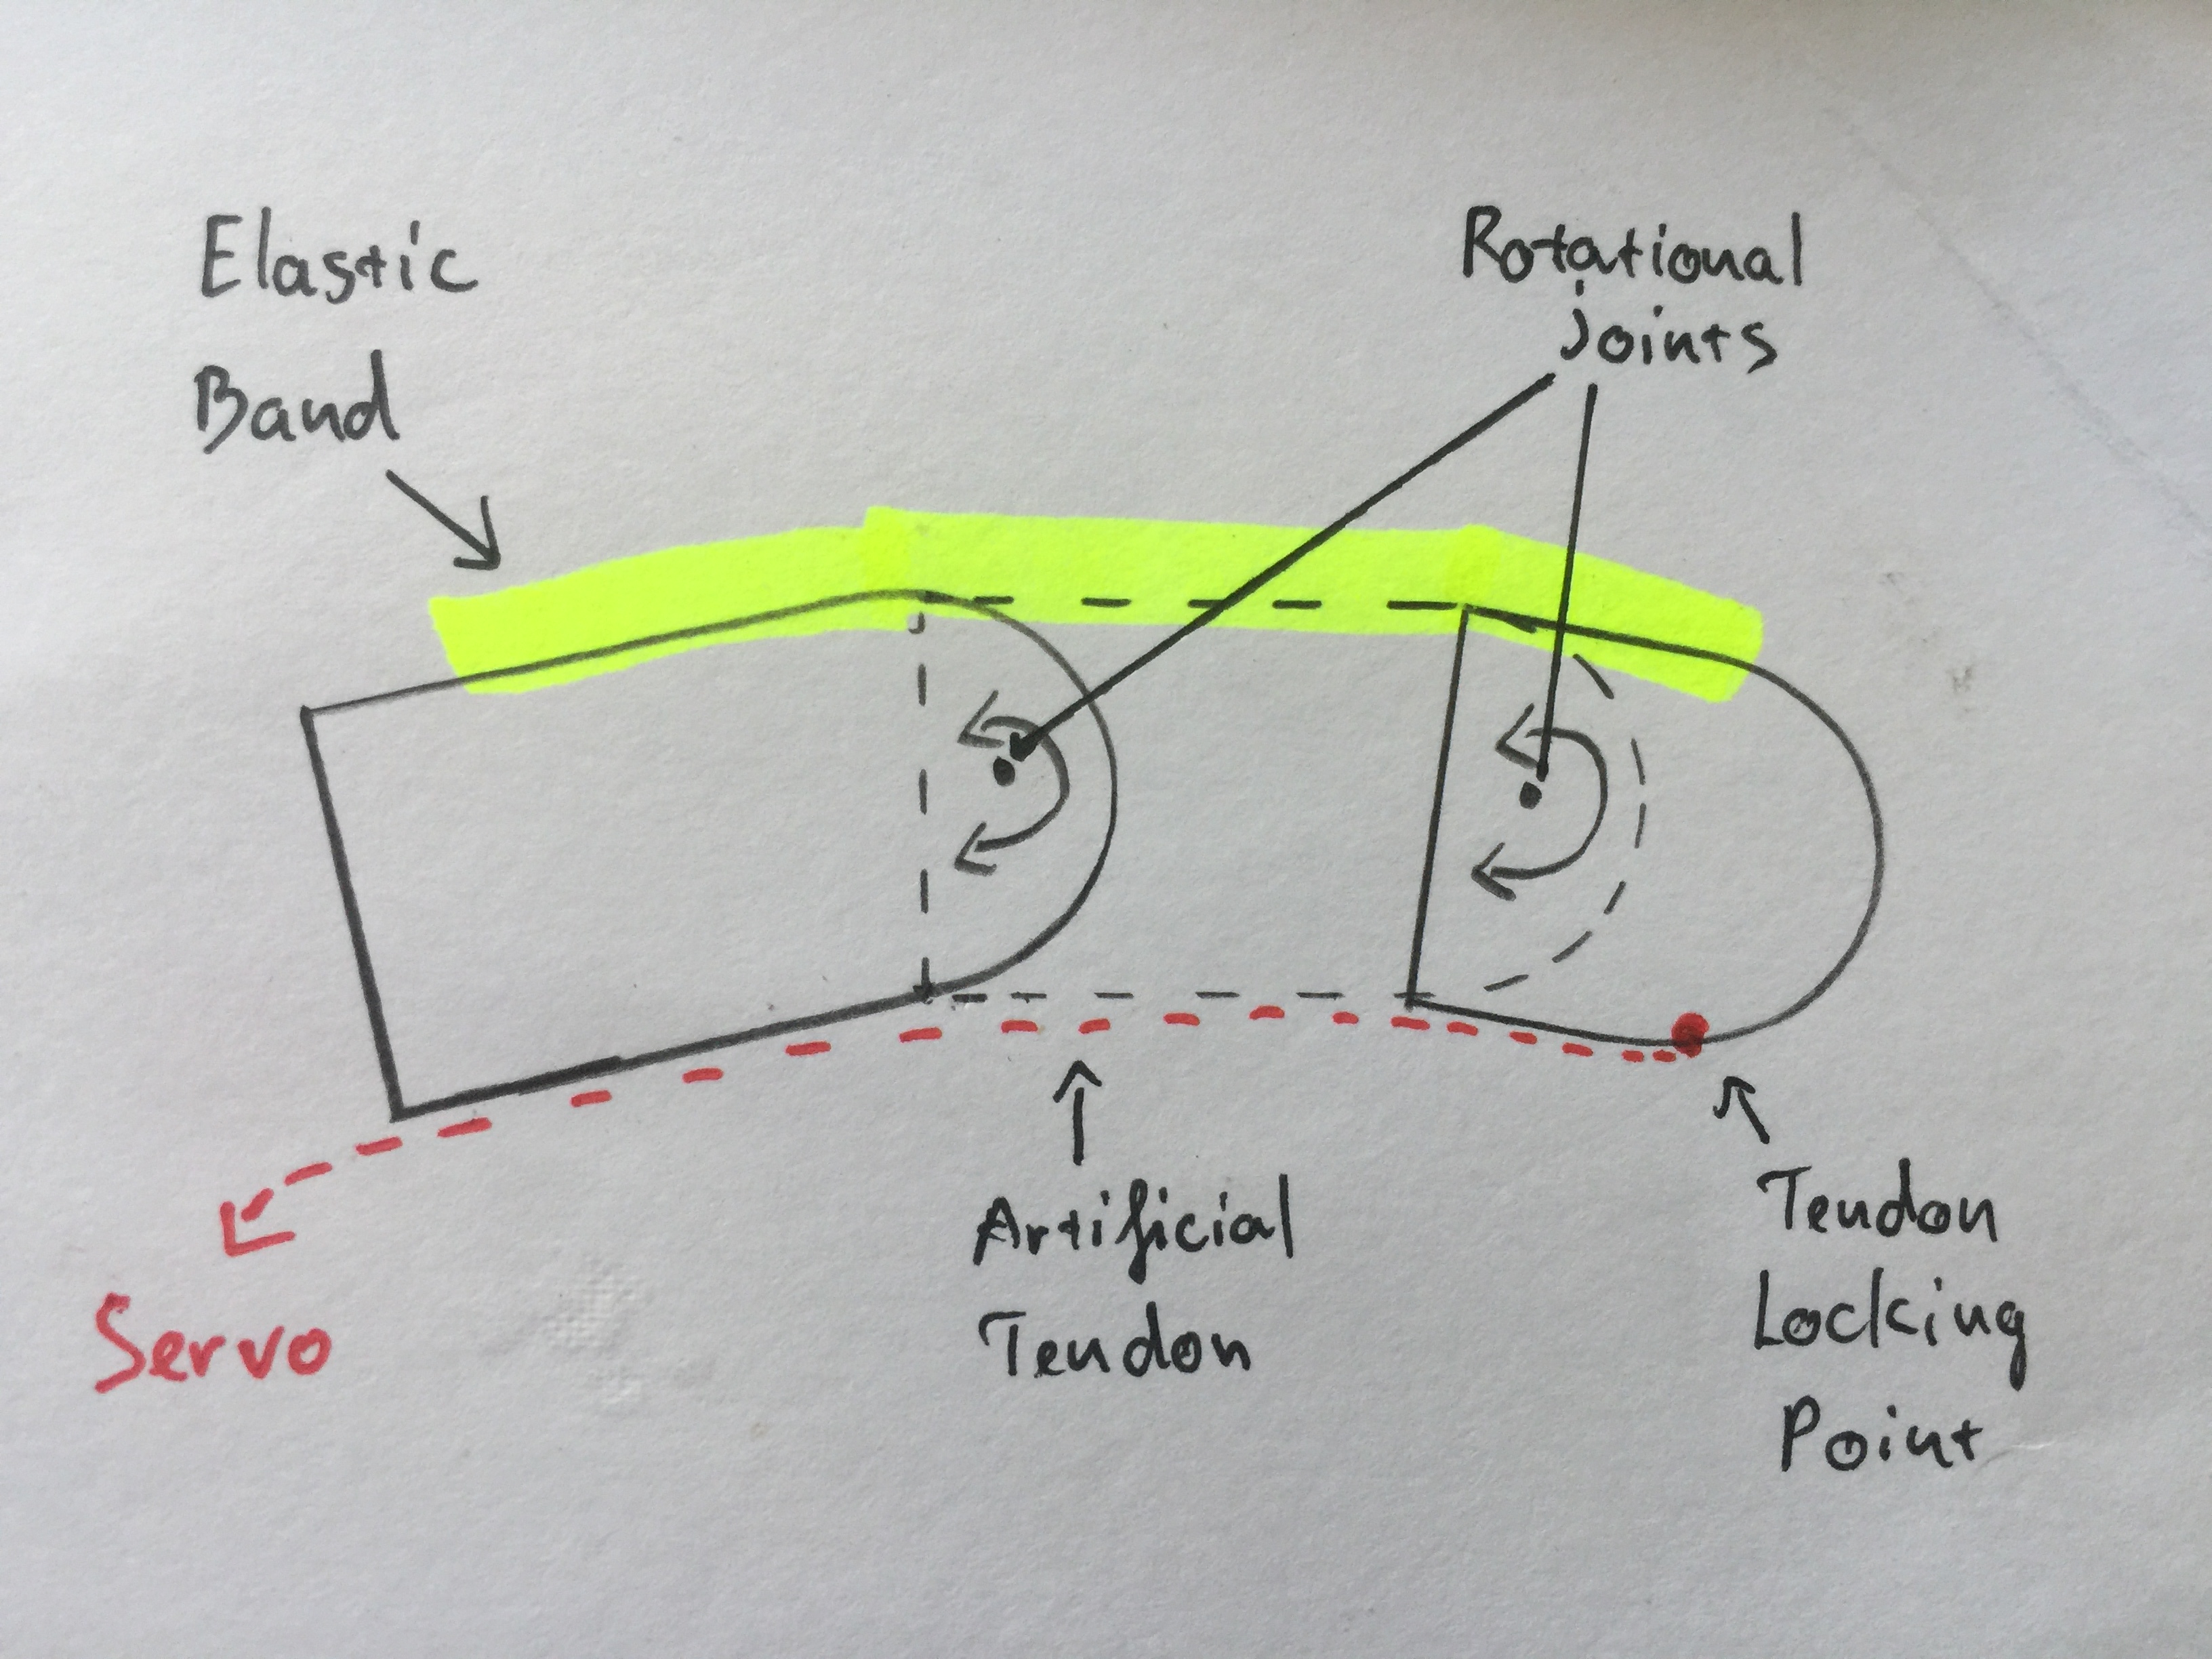 Elastic
Band
Rotational
joints
Servo
Artificial
Tendon
Tendon
Locking
Point